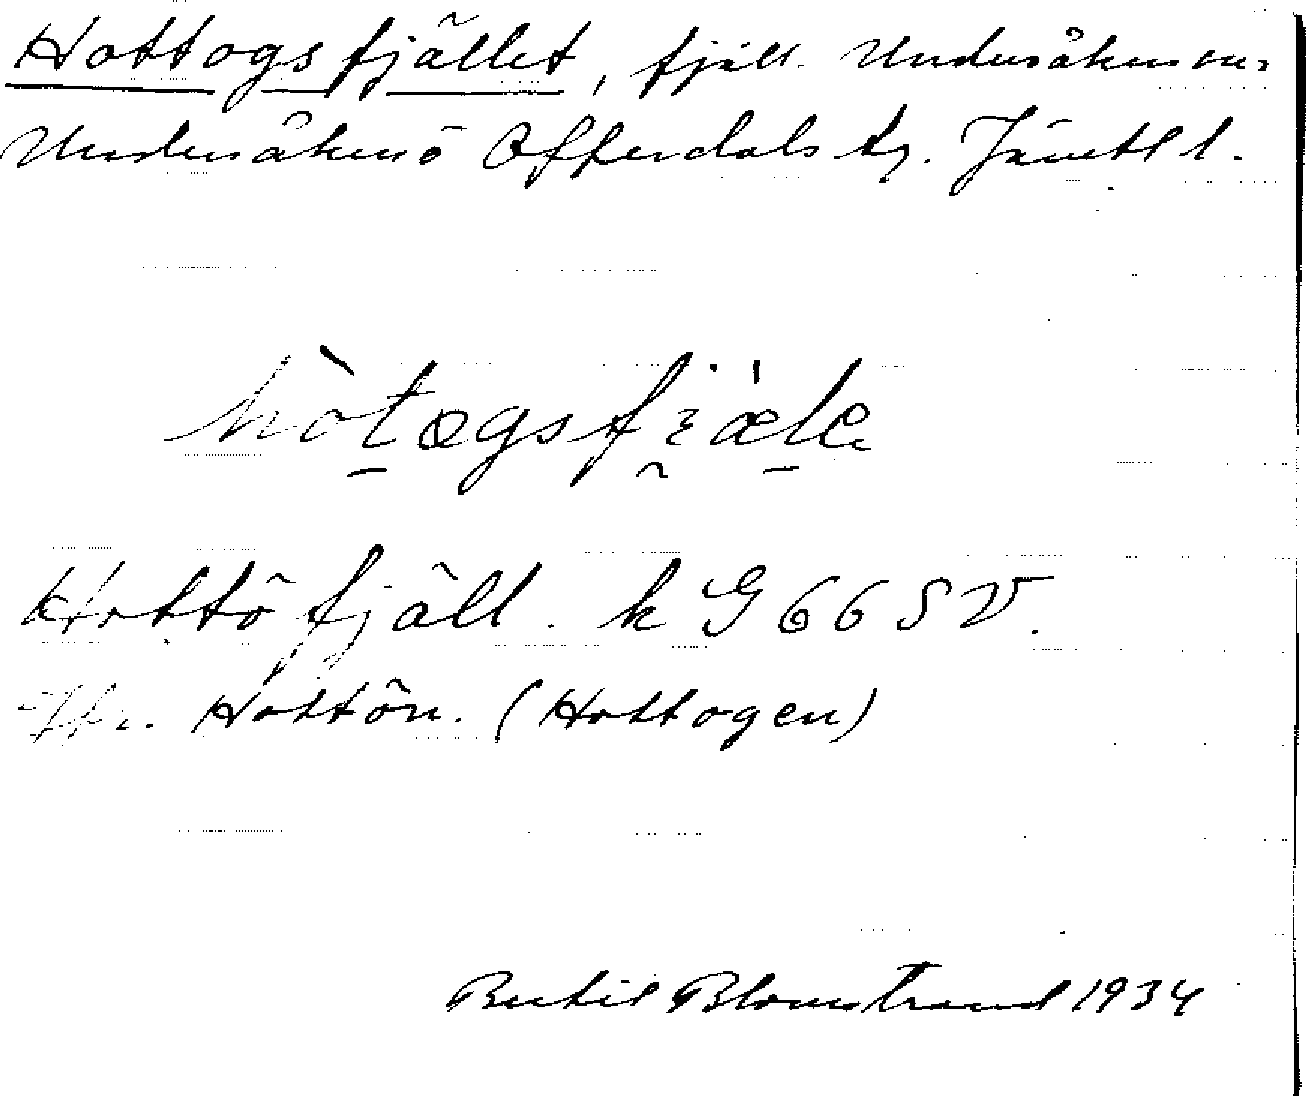 Hottogsfjället, fjäll. Undersåkers sn.
Undersåkers o Offerdals tg. Jämtl l.
hòtægsfjæle
Hottöfjäll. k G 66 SV.
Jfr. Hottön. (Hottogen)
Bertil Blomstrand 1934